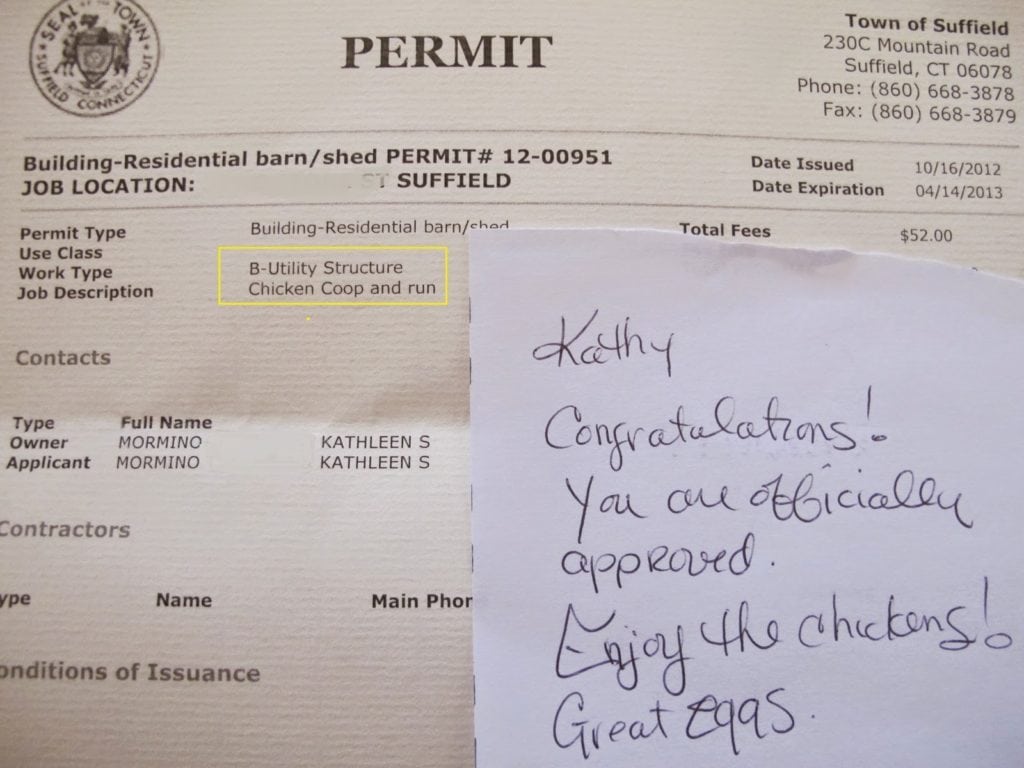 SEAL OF THE TOWN
SUFFIELD CONNECTICUT
PERMIT
Town of Suffield
230C Mountain Road
Suffield, CT 06078
Phone: (860) 668-3878
Fax: (860) 668-3879
Building-Residential barn/shed PERMIT# 12-00951
JOB LOCATION: ST SUFFIELD
Date Issued 10/16/2012
Date Expiration 04/14/2013
Permit Type Building-Residential barn/shed
Total Fees $52.00
Use Class
Work Type B-Utility Structure
Job Description Chicken Coop and run
Contacts
Type Full Name
Owner MORMINO KATHLEEN S
Applicant MORMINO KATHLEEN S
Contractors
ype Name Main Phor
onditions of Issuance
Kathy
Congratulations!
You are officially
approved.
Enjoy the chickens!
Great eggs.